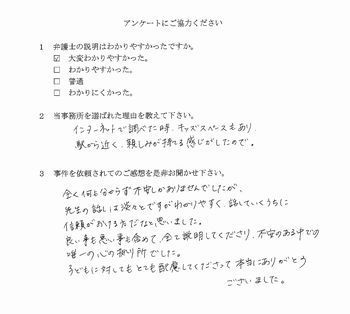 アンケートにご協力ください
1 弁護士の説明はわかりやすかったですか。
☑ 大変わかりやすかった。
□ わかりやすかった。
□ 普通
□ わかりにくかった。
2 当事務所を選ばれた理由を教えて下さい。
インターネットで調べた時、キッズスペースもあり
駅から近く、親しみが持てる感じがしたので。
3 事件を依頼されてのご感想を是非お聞かせ下さい。
全く何も分からず不安しかありませんでしたが、
先生の話しは淡々とですがわかりやすく、話していくうちに
信頼がおける方だなと思いました。
良い事も悪い事も含めて、全て説明してくださり、不安のある中での
唯一の心の拠り所でした。
子どもに対してもとても配慮してくださって本当にありがとう
ございました。